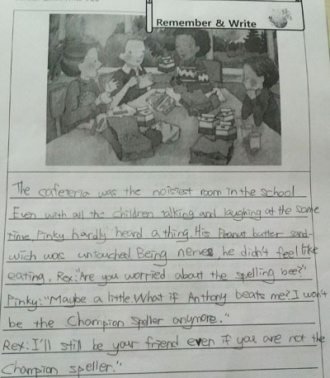 Remember & Write
The cafeteria was the noisest room in the school
Even with all the children talking and laughing at the same
time, Pinky hardly heard a thing. His Peanut butter sand-
wich was untouched Being nerves he didn't feel like
eating. Rex:"Are you worried about the spelling bee?"
Pinky:"Maybe a little. What if Anthony beats me? I won't
be the Champion Speller anymore."
Rex: I'll still be your friend even if you are not the
Champion speller."